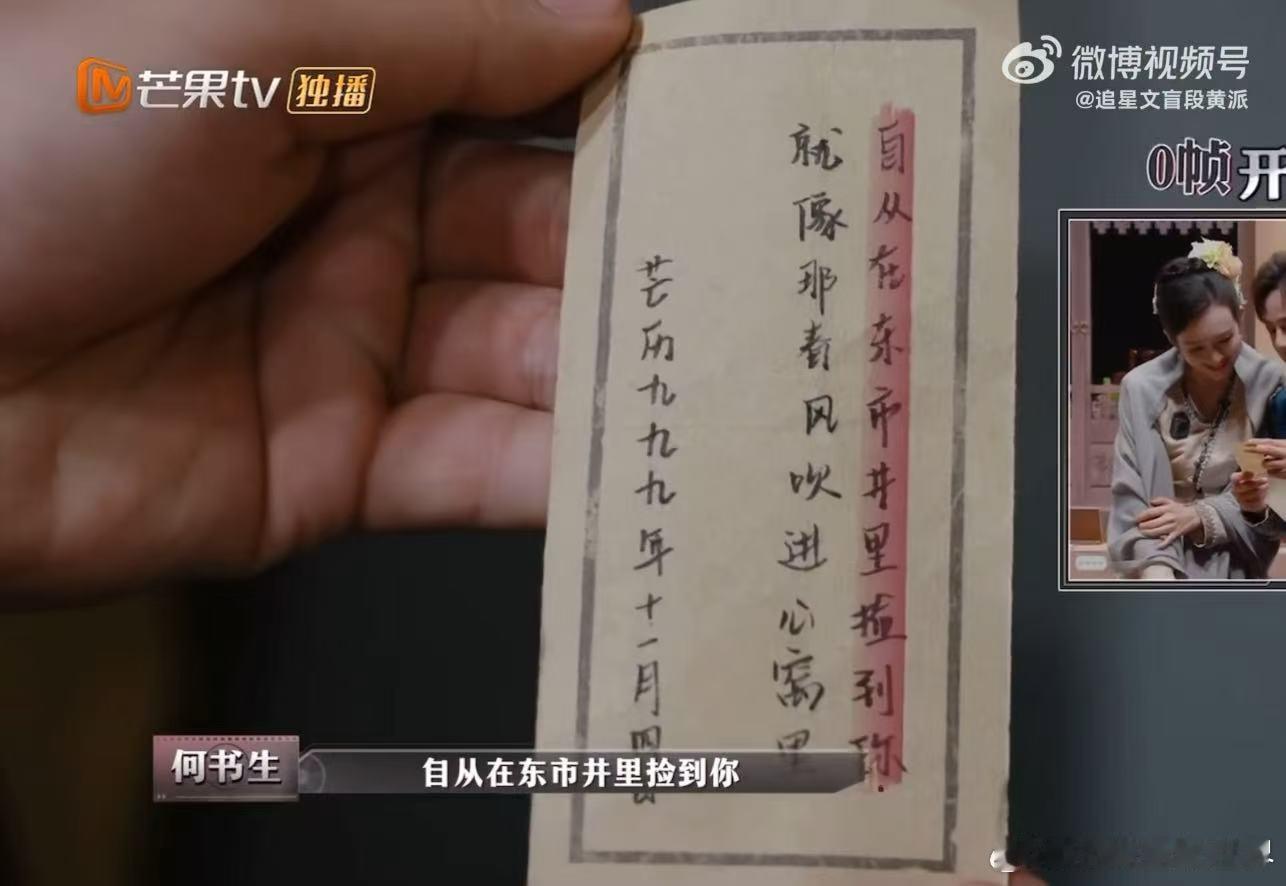 芒果tv 独播
微博视频号
@追星文盲段黄派
0帧开
自从在东市井里捡到你
就像那春风吹进心窝里
芒历九九九年十一月四日
何书生
自从在东市井里捡到你